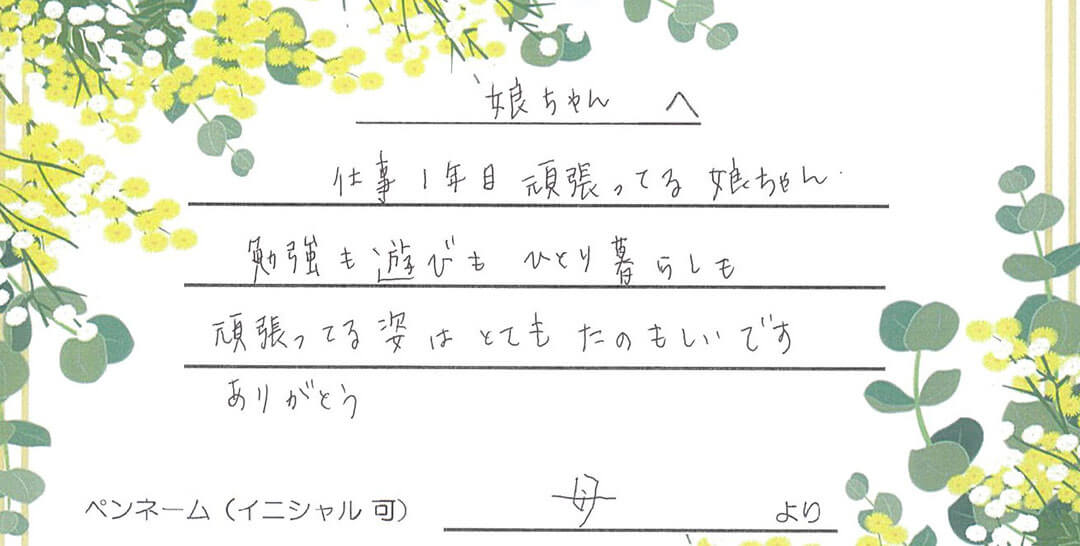 娘ちゃん へ
仕事1年目 頑張ってる 娘ちゃん
勉強も遊びも ひとり暮らしも
頑張ってる姿は とても たのもしいです
ありがとう
ペンネーム（イニシャル 可） 母 より